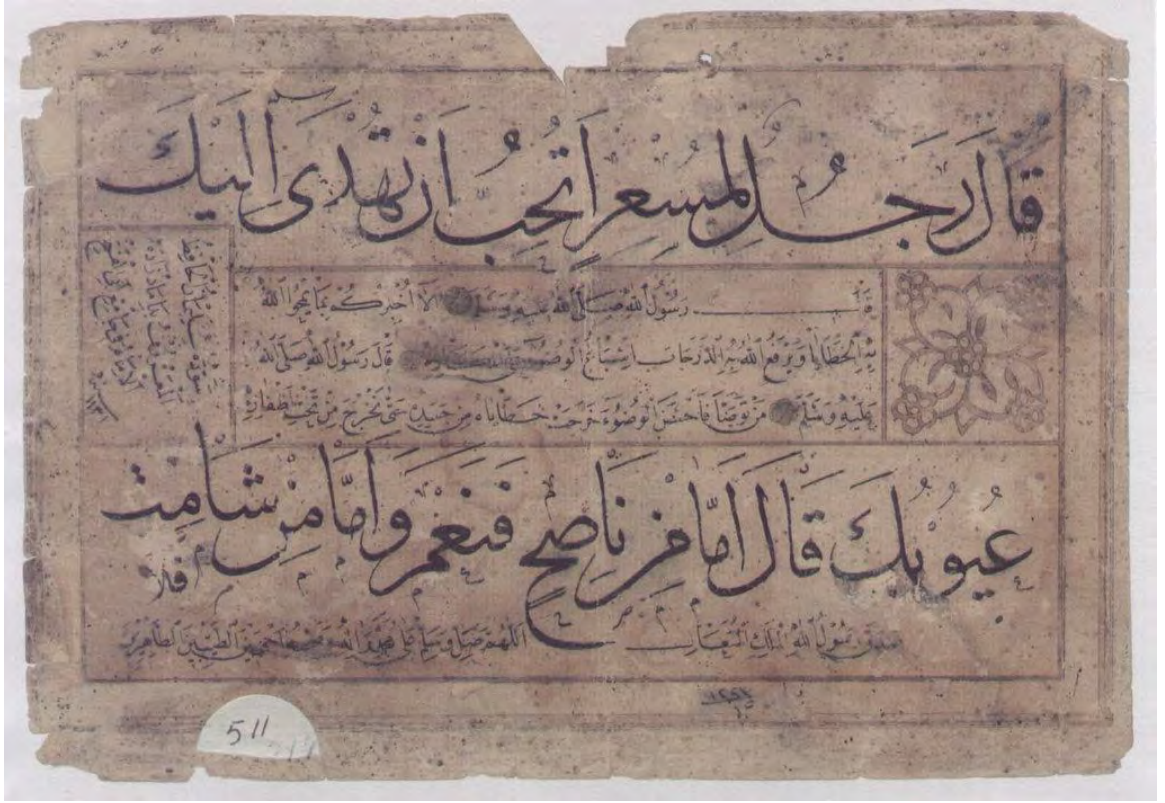 قَالَ رَجُلٌ لِمِسْعَرٍ اَتُحِبُّ اَنْ تُهْدٰى اِلَيْكَ
قال رسول الله صلى الله عليه وسلم الا اخبركم بما يمحوا الله
به الخطايا ويرفع الله به الدرجات اسباغ الوضوء قال رسول الله صلى الله
عليه وسلم من توضأ فاحسن الوضوء خرجت خطاياه من جسده حتى تخرج من تحت اظفاره
عُيُوبُكَ قَالَ اَمَّا مِنْ نَاصِحٍ فَنَعَمْ وَاَمَّا مِنْ شَامِتٍ
فلا
صدق رسول الله الملك المتعال اللهم صل وسلم على محمد واله وصحبه اجمعين الطيبين الطاهرين
511